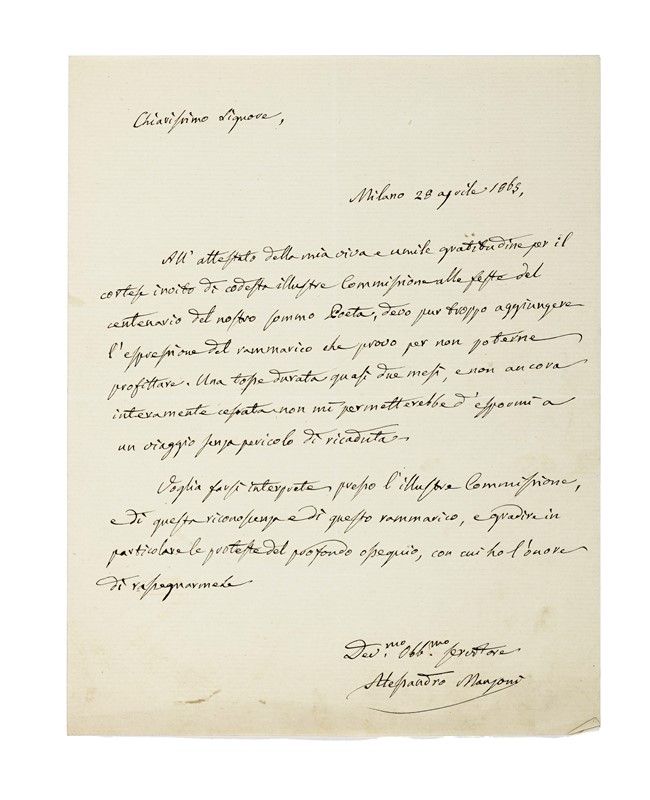 Chiarissimo Signore,
Milano 28 aprile 1865,
All' attestato della mia viva e umile gratitudine per il
cortese invito di codesta illustre Commissione alle feste del
centenario del nostro sommo Poeta, devo pur troppo aggiungere
l'espressione del rammarico che provo per non poterne
profittare. Una tosse durata quasi due mesi, e non ancora
interamente cessata non mi permetterebbe d'espormi a
un viaggio senza pericolo di ricaduta.
Voglia farsi interprete presso l'illustre Commissione,
e di questa riconoscenza e di questo rammarico, e gradire in
particolare le proteste del profondo ossequio, con cui ho l'onore
di rassegnarmele
Dev.mo Obb.mo servitore
Alessandro Manzoni